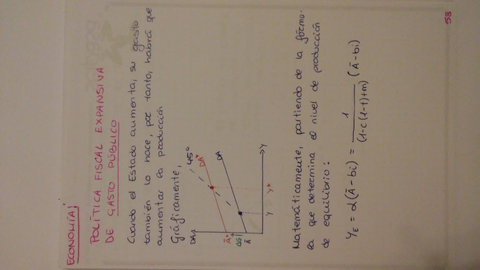 ECONOMÍA!
POLÍTICA FISCAL EXPANSIVA
DE GASTO PÚBLICO
Cuando el Estado aumenta, su gasto
también lo hace, por tanto, habrá que
aumentar la producción
Gráficamente,
DA
45º
DA'
DA
Ā'
Ā
Y
Y*
Y
Matemáticamente, partiendo de la fórmu-
la que determina el nivel de producción
de equilibrio:
Y_E = α(Ā - bi) = 1 / (1-c(1-t)+m) (Ā - bi)
58